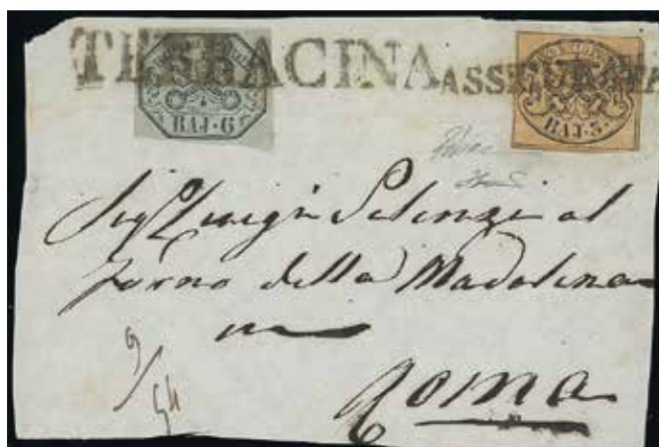 TERRACINA ASSICURATA
BAJ·6
BAJ·3·
Sig Luigi al
forno della Madalena
Roma
9/54